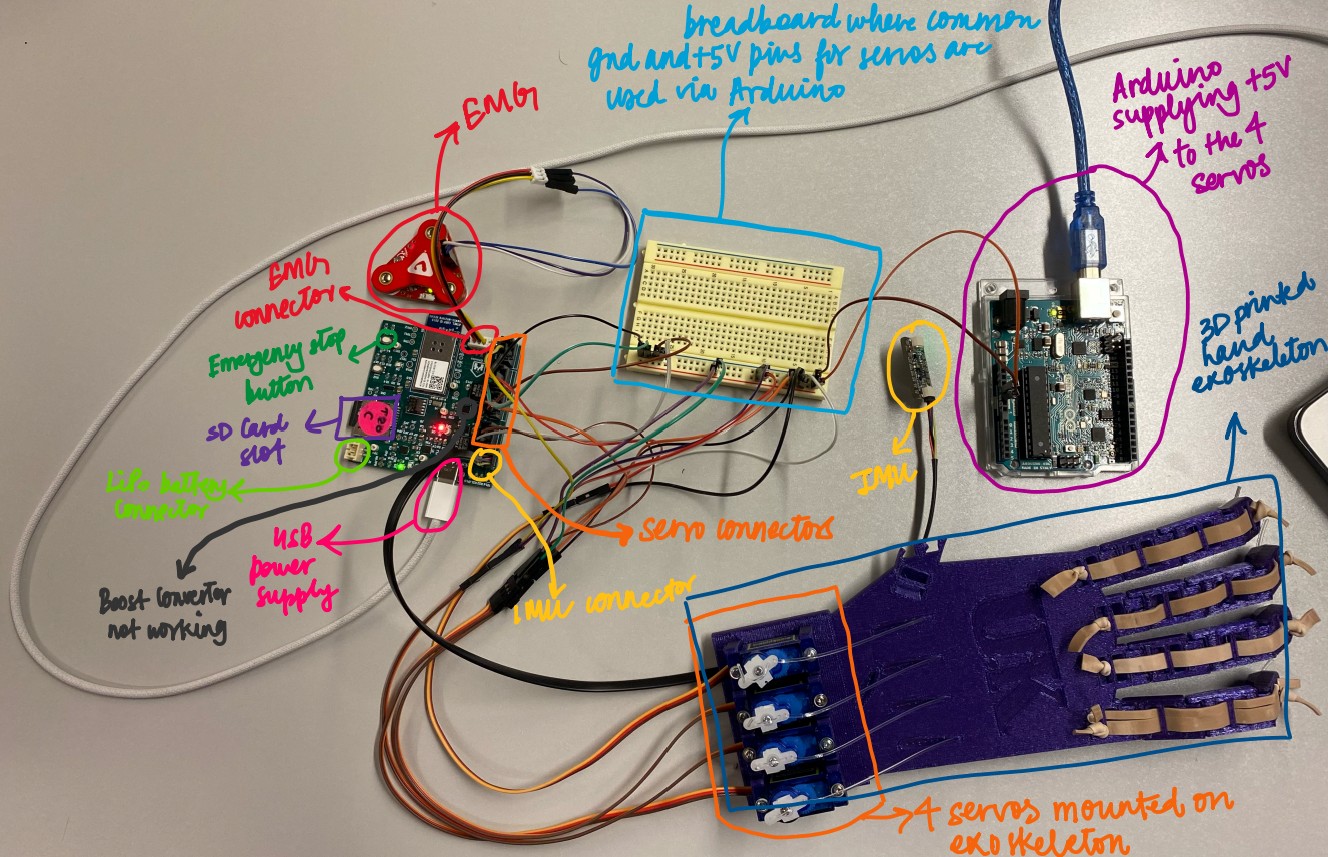 breadboard where common
gnd and +5V pins for servos are
used via Arduino
Arduino
supplying +5V
to the 4
servos
EMG
EMG
connector
Emergency stop
button
SD Card
slot
LiPo battery
connector
USB
power
supply
Boost Converter
not working
IMU connector
servo connectors
IMU
3D printed
hand
exoskeleton
4 servos mounted on
exoskeleton